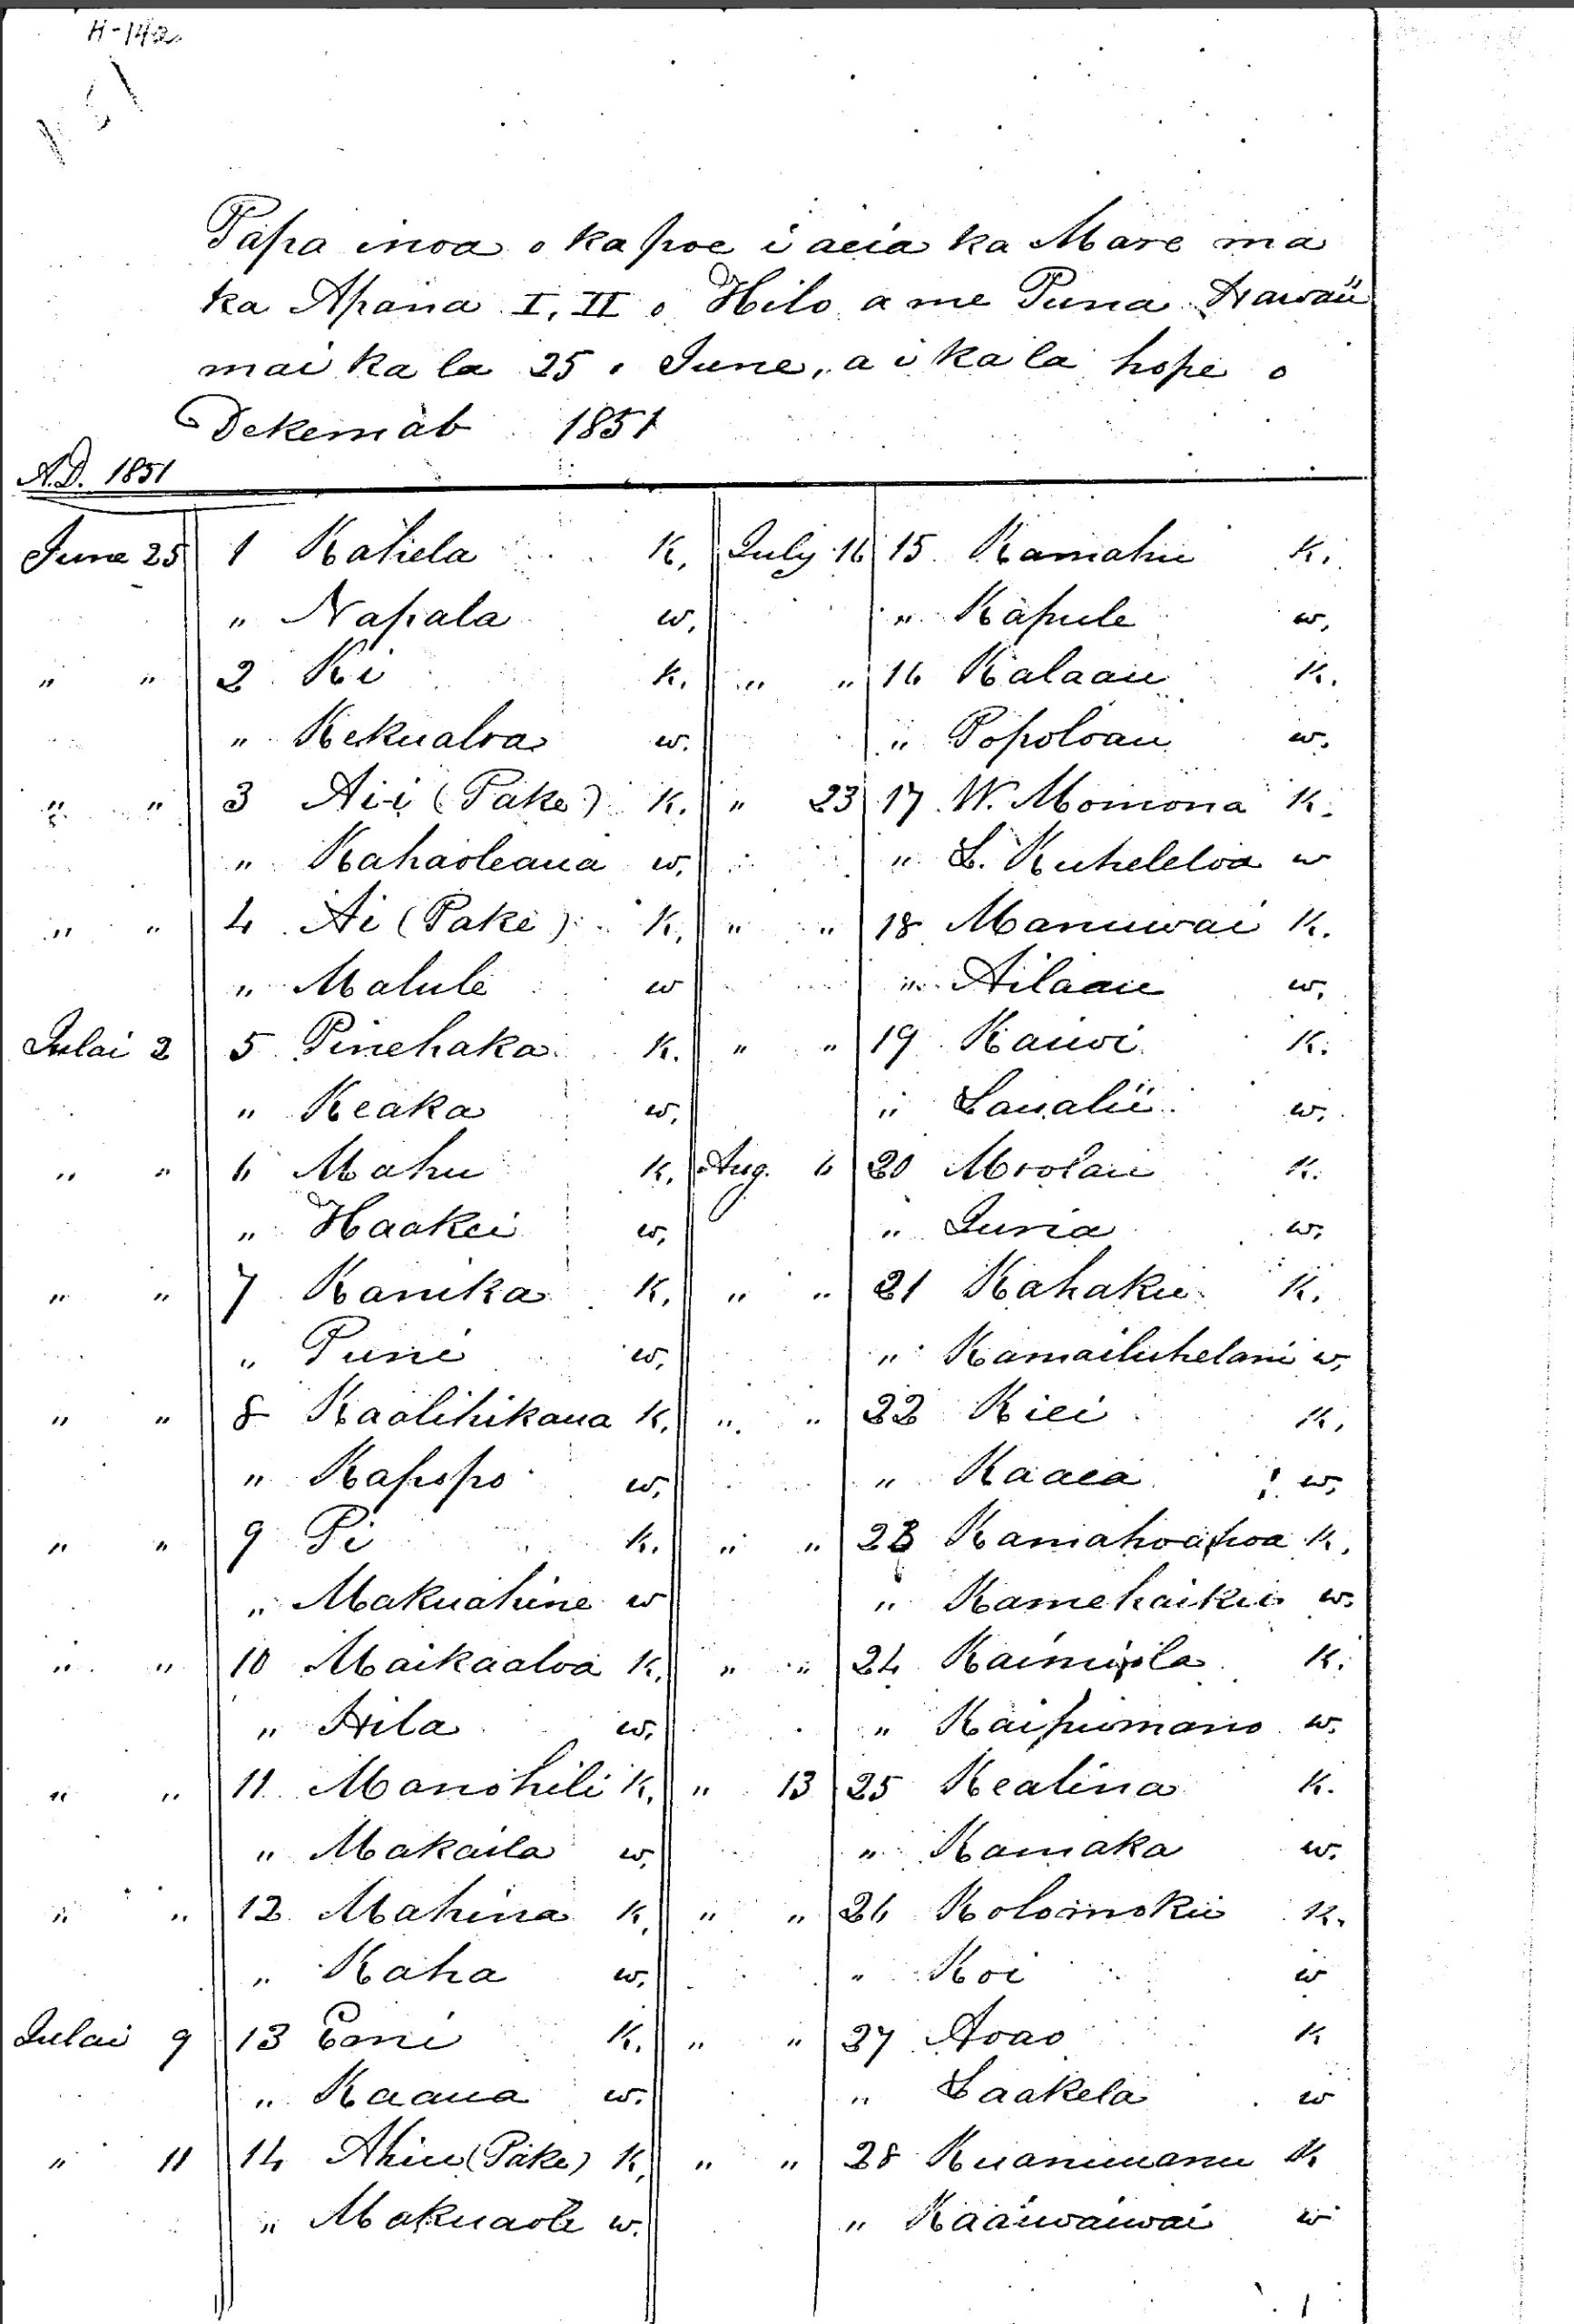 H-142
Papa inoa o ka poe i aeia ka Mare ma
ka Apana I, II o Hilo a me Puna Hawaii
mai ka la 25 o June, a i ka la hope o
Dekemab 1851
A.D. 1851
June 25 1 Kahela K.
" Napala w.
" " 2 Ki K.
" Kekualoa w.
" " 3 Ai-i (Pake) K.
" Kahaoleaua w.
" " 4 Ai (Pake) K.
" Malule w
Julai 2 5 Pinehaka K.
" Keaka w.
" " 6 Mahu K.
" Haakei w.
" " 7 Kanika K.
" Puni w.
" " 8 Kaalihikaua K.
" Kapopo w.
" " 9 Pi K.
" Makuahine w
" " 10 Maikaaloa K.
" Hila w.
" " 11 Manohili K.
" Makaila w.
" " 12 Mahina K.
" Kaha w.
Julai 9 13 Eoni K.
" Kaaua w.
" 11 14 Ahiu (Pake) K.
" Makuaole w.
July 16 15 Kamahu K.
" Kapule w.
" " 16 Kalaau K.
" Popoloau w.
" 23 17 W. Momona K.
" L. Kuheleloa w
" " 18 Manuwai K.
" Ailaau w.
" " 19 Kauwi K.
" Laualii w.
Aug. 6 20 Moolau K.
" Luria w.
" " 21 Kahaku K.
" Kamailuhelani w.
" " 22 Kiei K.
" Kaaea w.
" " 23 Kamahoahoa K.
" Kamehaiku w.
" " 24 K.
" Kaipuomano w.
" 13 25 Kealina K.
" Kamaka w.
" " 26 Kolomoku K.
" Koi w
" " 27 Aoao K
" Laakela w
" " 28 Kuanuuanu K
" Kaauwaiwai w